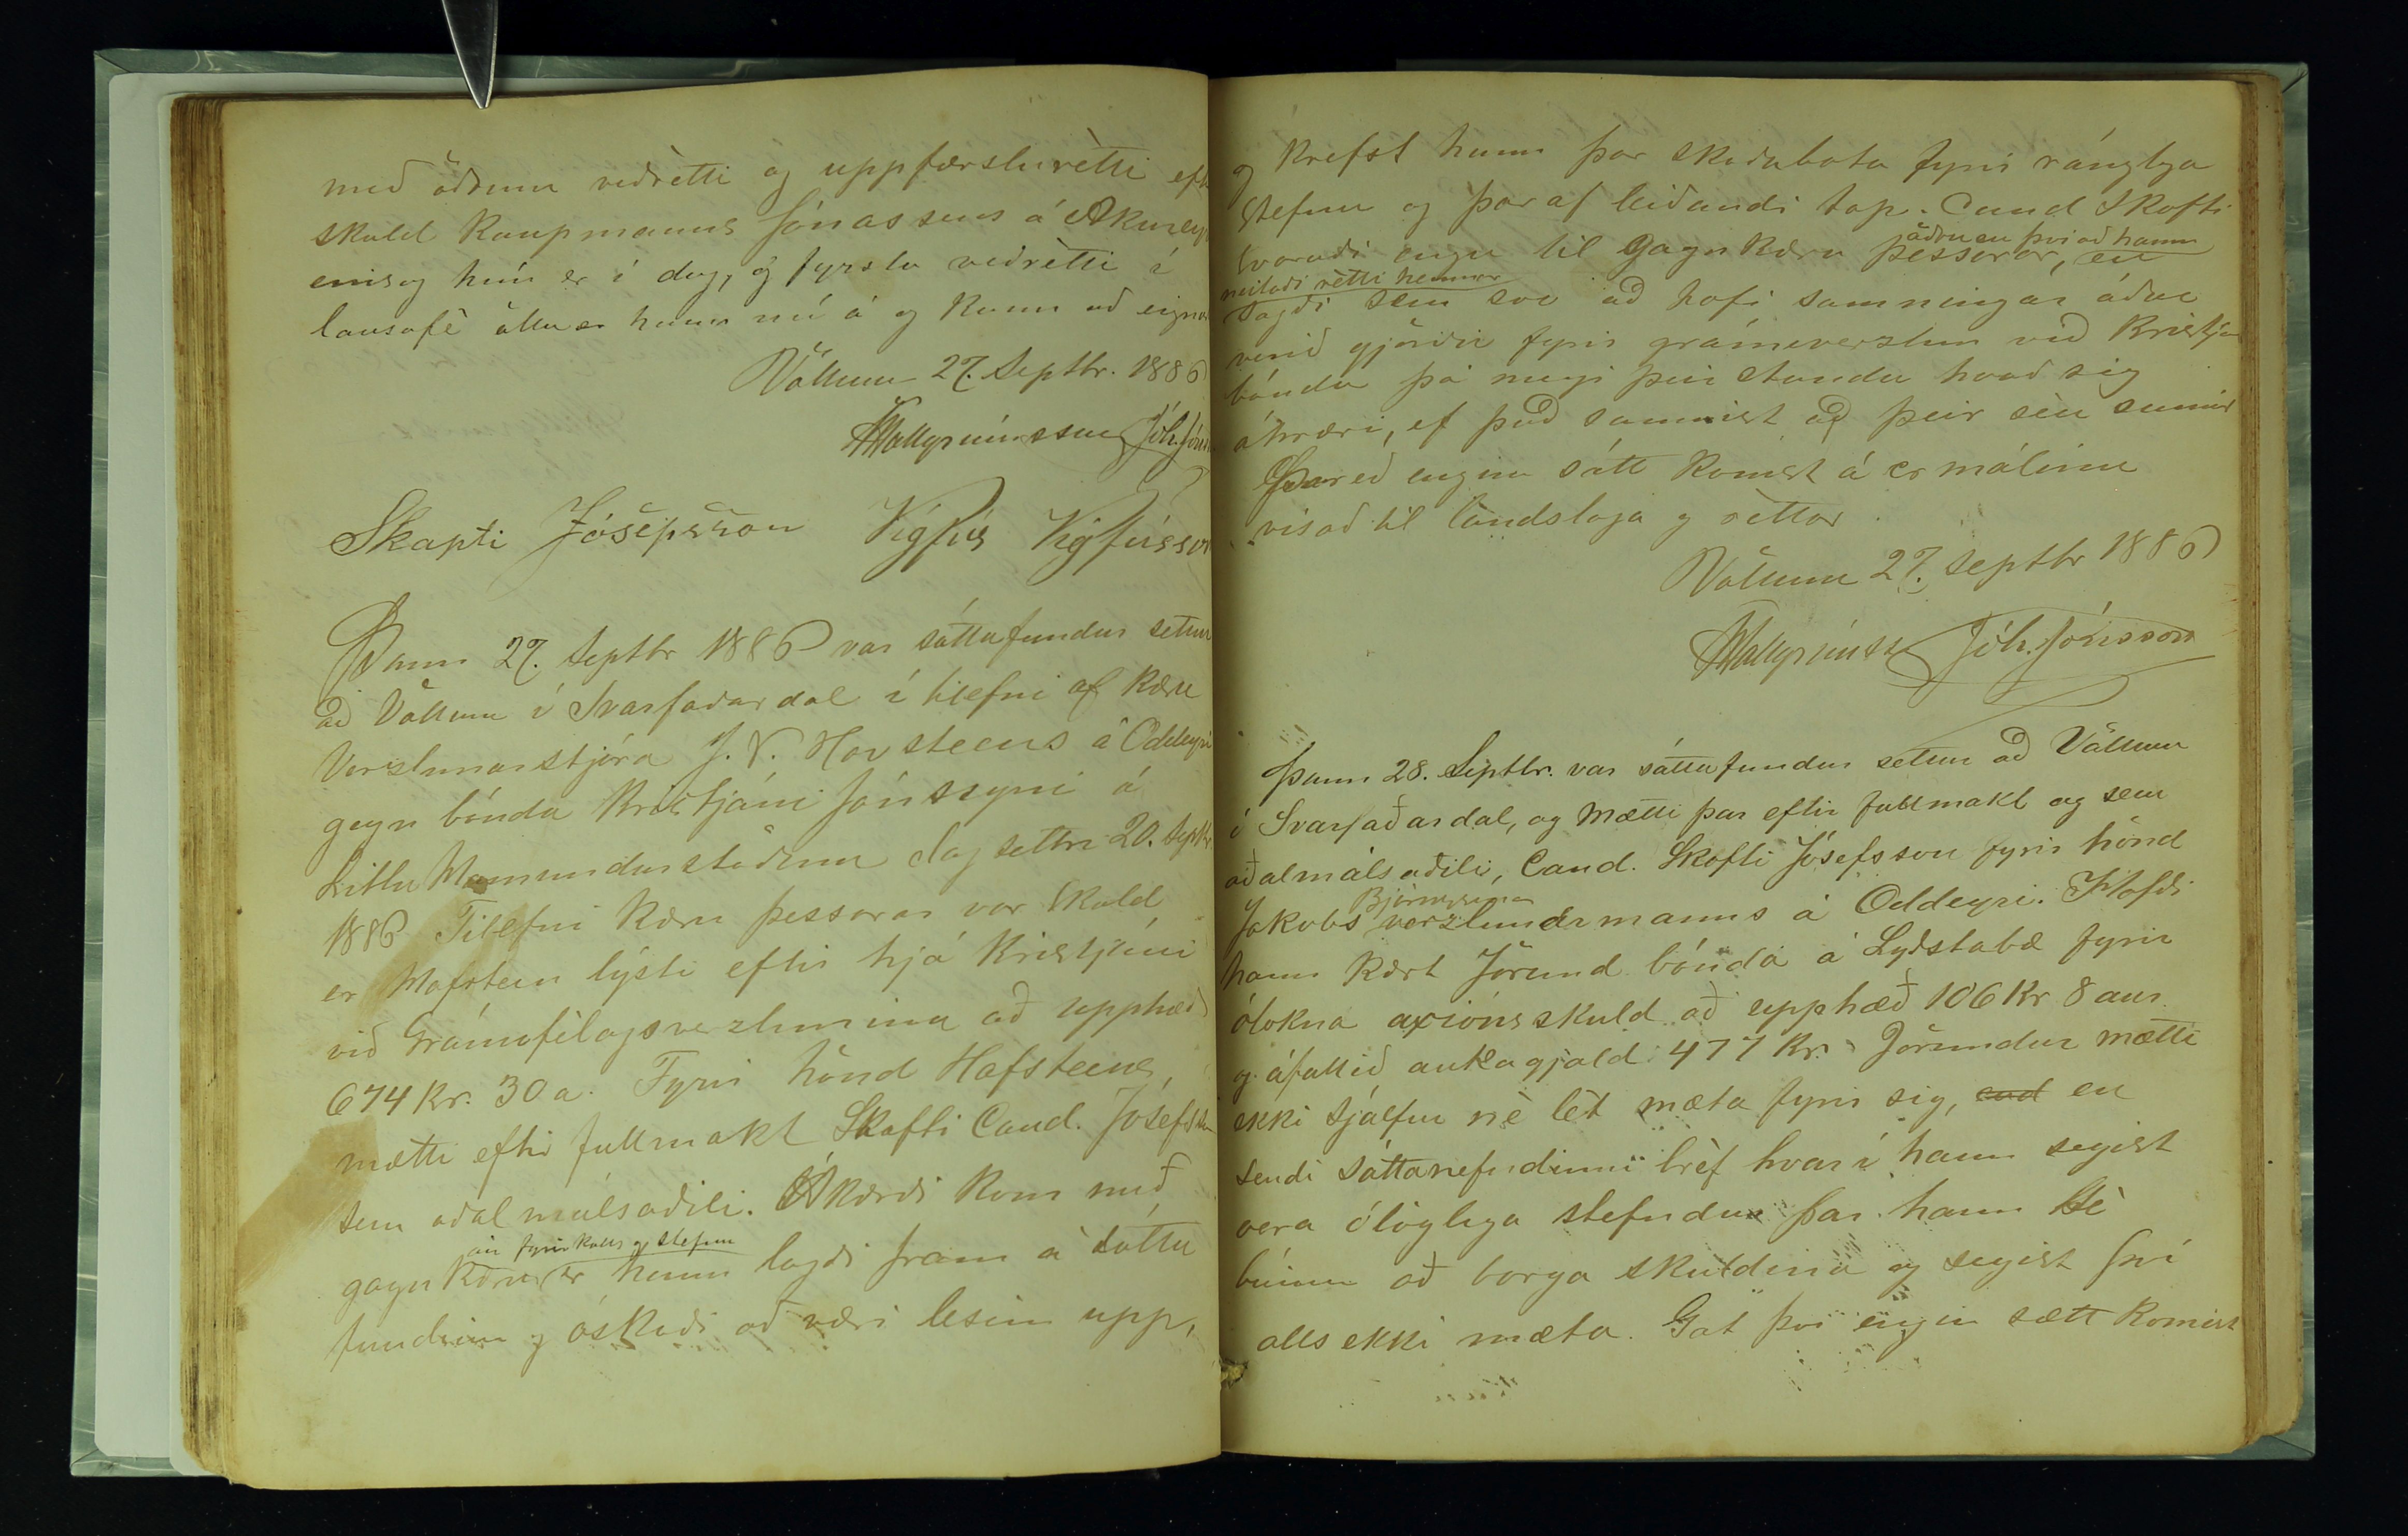 með öðrum veðrétti og uppfærslurétti eft
skuld kaupmanns Jónassens á Akurey
einsog hún er í dag, og fyrsta veðrétti í
lausafé öllu er hann nú á og kann að eigna
Völlum 27. Septbr. 1886
Hallgrímsson Jóh. Jóns
Skapti Jósepsson Vigfús Vigfússon
Þann 27. Septbr 1886 var sáttafundur settur
að Völlum í Svarfaðardal í tilefni af kæru
Verzlunarstjóra J. V. Havsteens á Oddeyri
gegn bónda Kristjáni Jónssyni á
Litlu Hamundarstöðum dagsettri 20. Septbr
1886 Tilefni kæru þessarar var skuld
er Hafsteen lýsti eftir hjá Kristjáni
við Gránufélagsverzlunina að upphæð
674 Kr. 30 a. Fyrir hönd Hafsteens
mætti eftir fullmakt Skafti Cand. Jósefsson
sem aðalmálsaðili. Ákærði kom með
án fyrirkalls og stefnu
gagnkæru er hann lagði fram á sátta
fundinum og óskaði að væri lesin upp,
og krefst hann þar skaðabota fyrir ránglega
stefnu og þar af leiðandi tap. Cand Skafti
öðru en því að hann
svaraði engu til gagnkæru þessarar, en
neitaði rétti hennar
sagði sem svo að hafi samningar áður
verið gjörðir fyrir gránuverzlun við Kristján
bónda þá megi þeir standa hvað sig
áhræri, ef það sannist að þeir séu sannir
Þareð engin sátt komst á er málinu
vísað til landslaga og réttar.
Völlum 27. septbr 1886
Hallgrímss Jóh. Jónsson
Þann 28. Septbr. var sáttafundur settur að Völlum
í Svarfaðardal, og mætti þar eftir fullmakt og sem
aðalmálsaðili, Cand. Skafti Jósefsson fyrir hönd
Björnssonar
Jakobs verzlunarmanns á Oddeyri. Hafði
hann kært Jörund bónda á Lýðstabæ fyrir
ólokna axionsskuld að upphæð 106 Kr 8 aur
og áfallið aukagjald 477 Kr. Jörundur mætti
ekki sjálfur né lét mæta fyrir sig, end en
sendi sáttanefndinni bréf hvar í hann segist
vera ólöglega stefndur þar hann sé
búinn að borga skuldina og segist því
alls ekki mæta. Gat því engin sætt komist